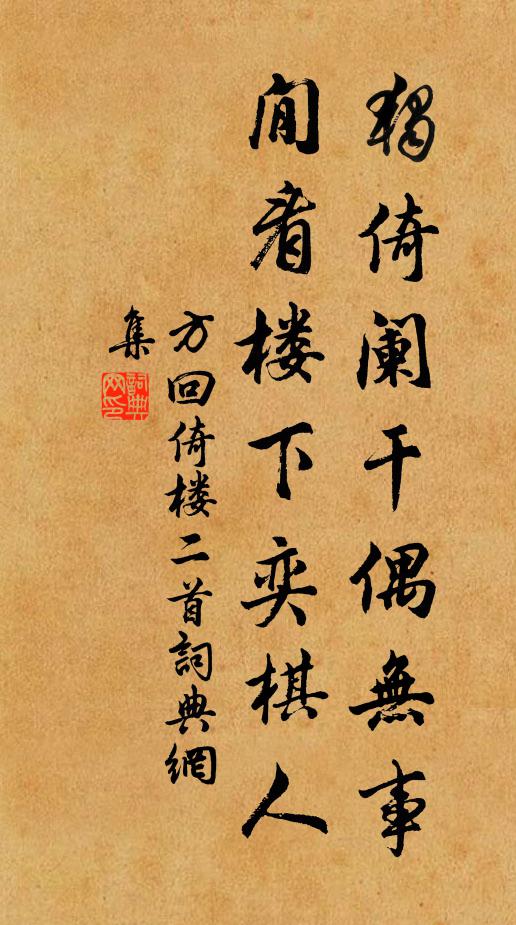 獨倚阑干偶無事
閒看楼下奕棋人
方回倚楼二首詞典網
集
詞典网印